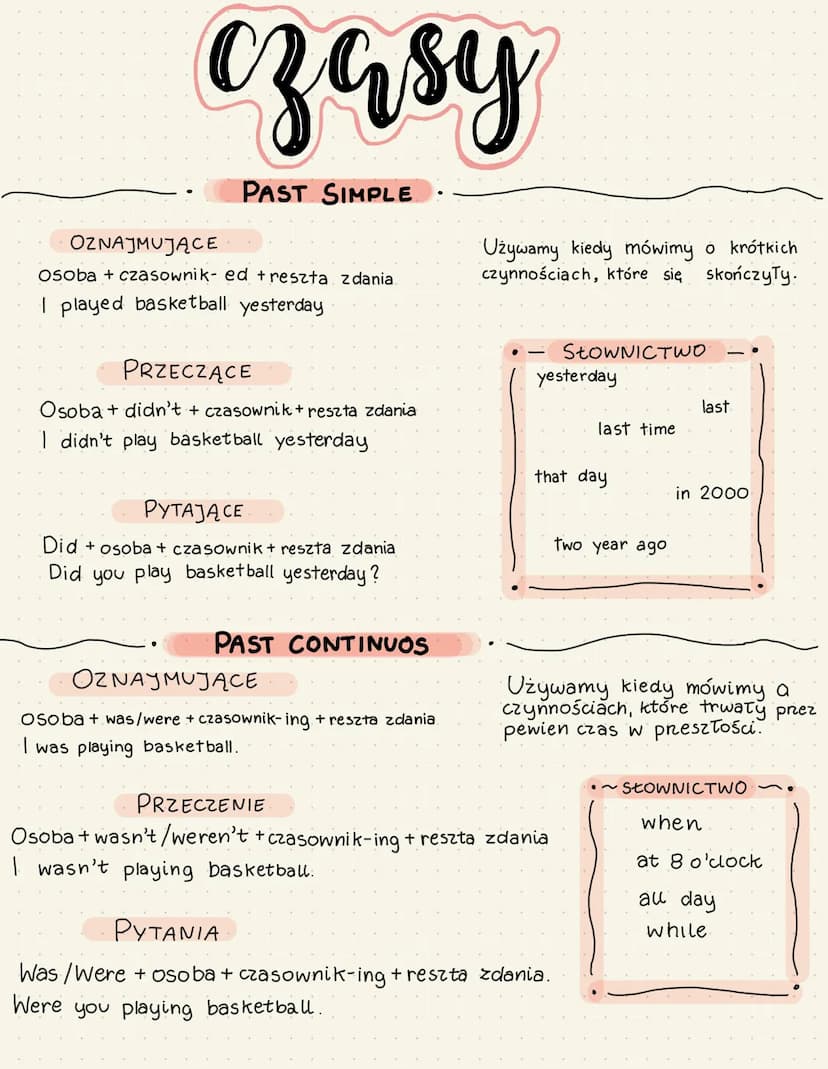 czasy
PAST SIMPLE
OZNAJMUJĄCE
osoba + czasownik- ed + reszta zdania
I played basketball yesterday
Używamy kiedy mówimy o krótkich
czynnościach, które się skończyły.
PRZECZĄCE
Osoba + didn't + czasownik + reszta zdania
I didn't play basketball yesterday
PYTAJĄCE
Did + osoba + czasownik + reszta zdania
Did you play basketball yesterday?
SŁOWNICTWO
yesterday
last
last time
that day
in 2000
two year ago
PAST CONTINUOS
OZNAJMUJĄCE
osoba + was/were + czasownik-ing + reszta zdania
I was playing basketball.
Używamy kiedy mówimy o
czynnościach, które trwały przez
pewien czas w preszłości.
PRZECZENIE
Osoba + wasn't/weren't + czasownik-ing + reszta zdania
I wasn't playing basketball.
PYTANIA
Was/Were + osoba + czasownik-ing + reszta zdania.
Were you playing basketball.
SŁOWNICTWO
when
at 8 o'clock
all day
while